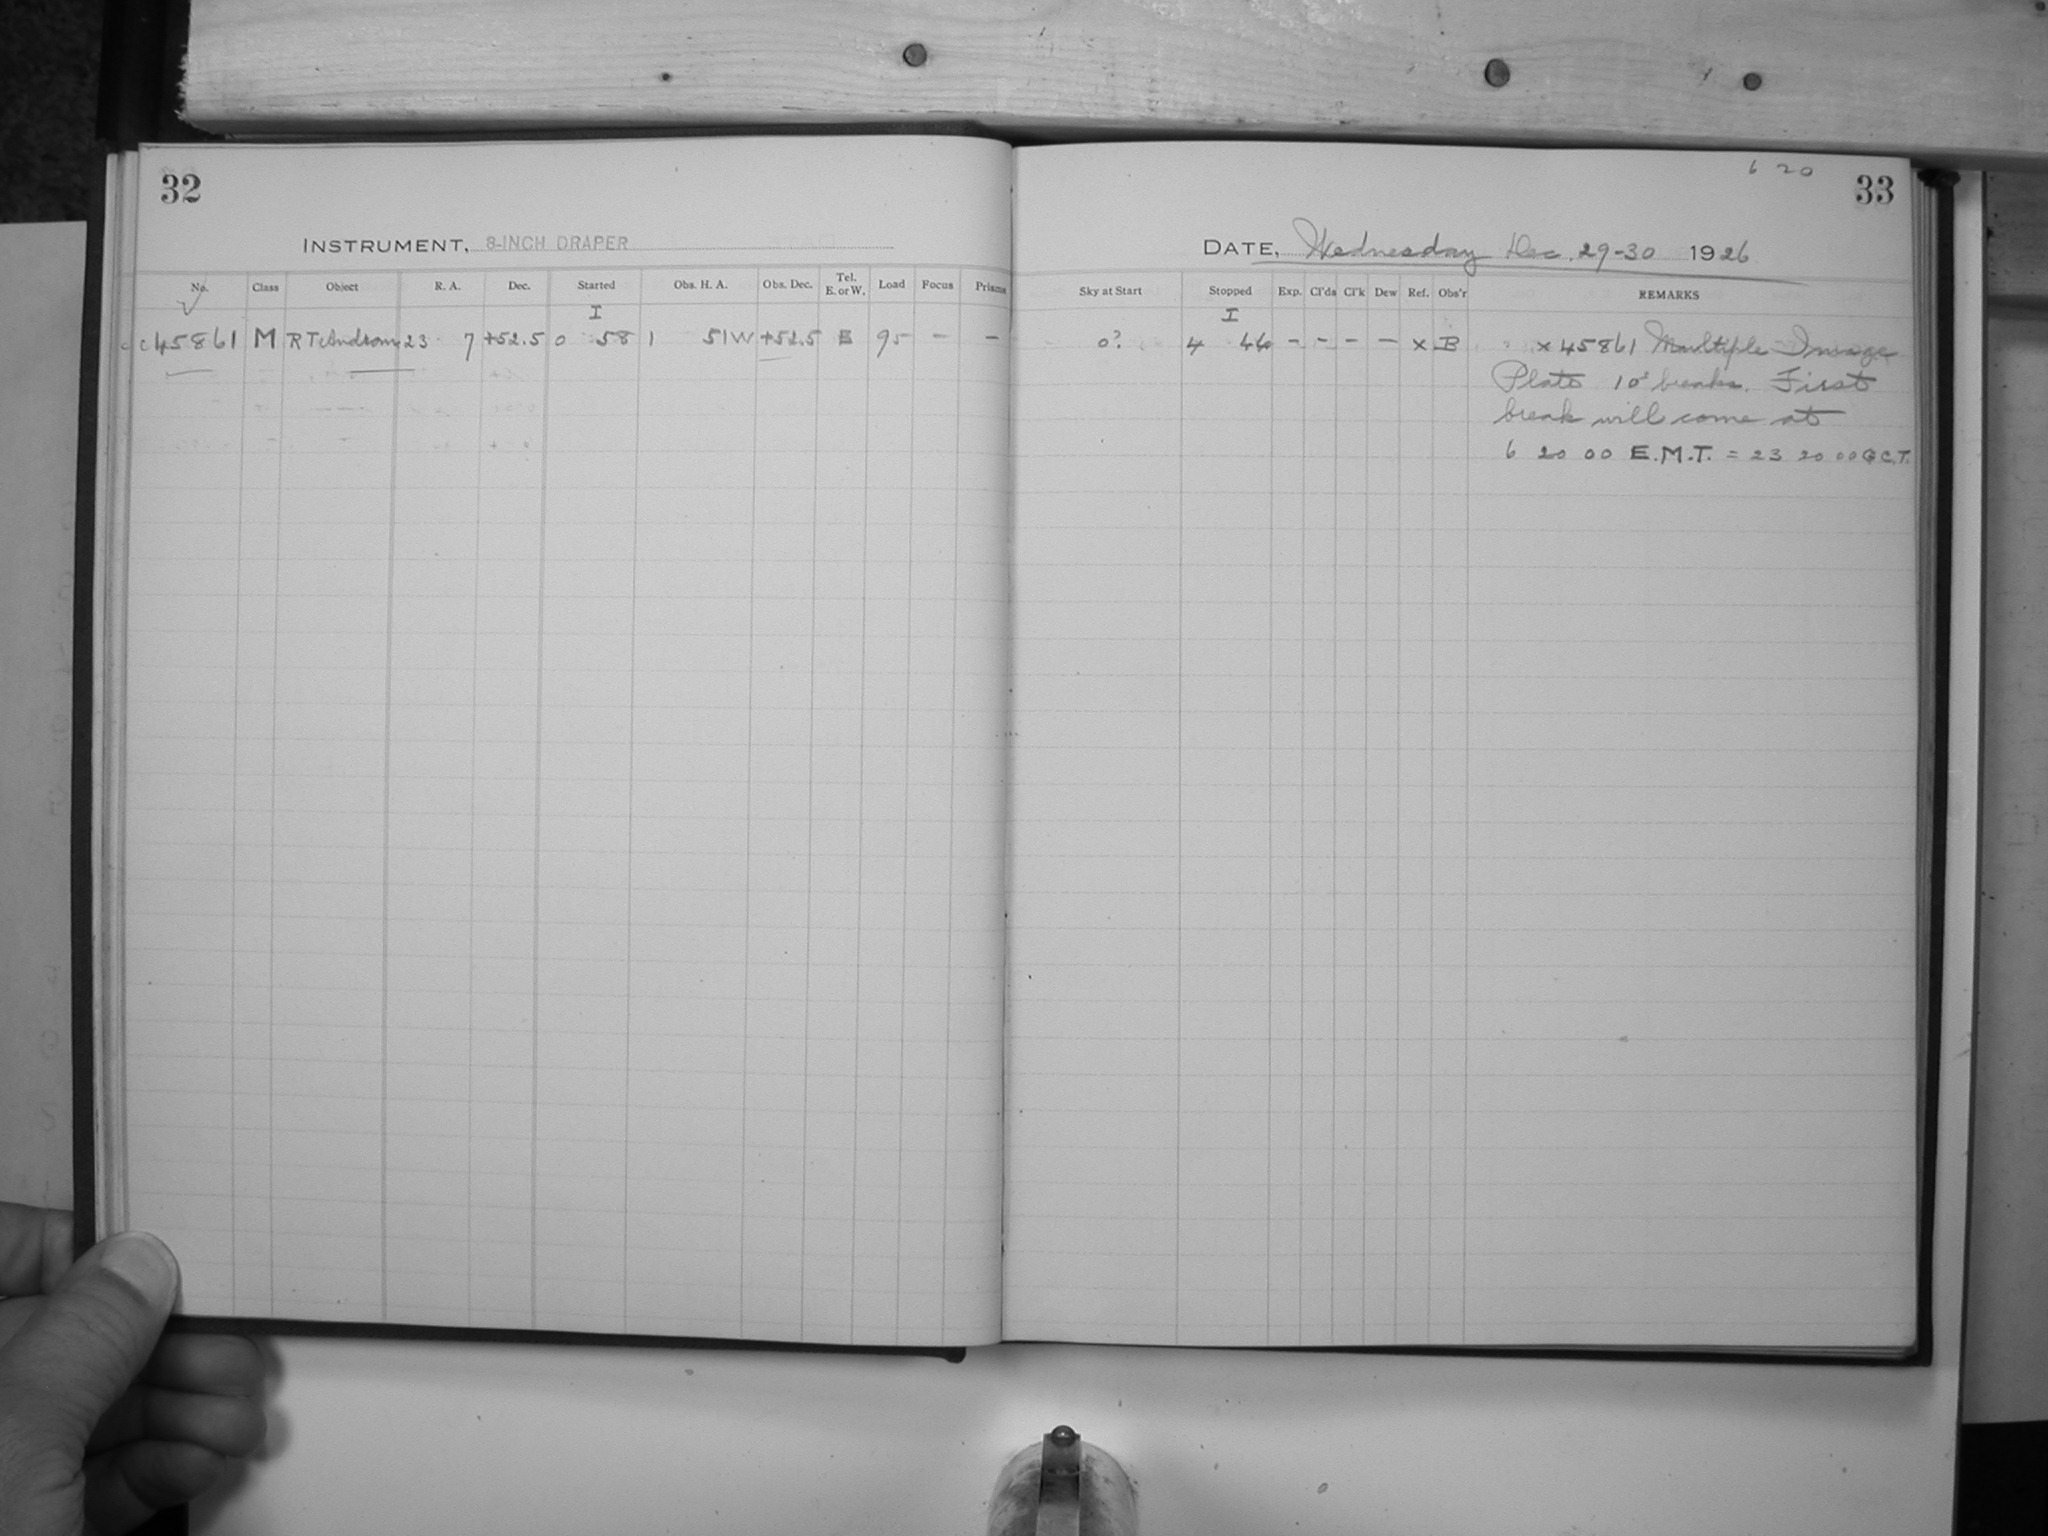 32
INSTRUMENT, 8-INCH DRAPER
No. Class Object R. A. Dec. Started Obs. H. A. Obs. Dec. Tel. E. or W. Load Focus Prisms
I
c45861 M RT Androm 23 7 +52.5 0 58 1 51W +52.5 E 95 – –
6 20
33
DATE, Wednesday Dec. 29-30 1926
Sky at Start Stopped Exp. Cl'ds Cl'k Dew Ref. Obs'r REMARKS
I
0? 4 44 – – – – x B x 45861 Multiple Image
Plate 10s breaks. First
break will come at
6 20 00 E.M.T. = 23 20 00 G.C.T.